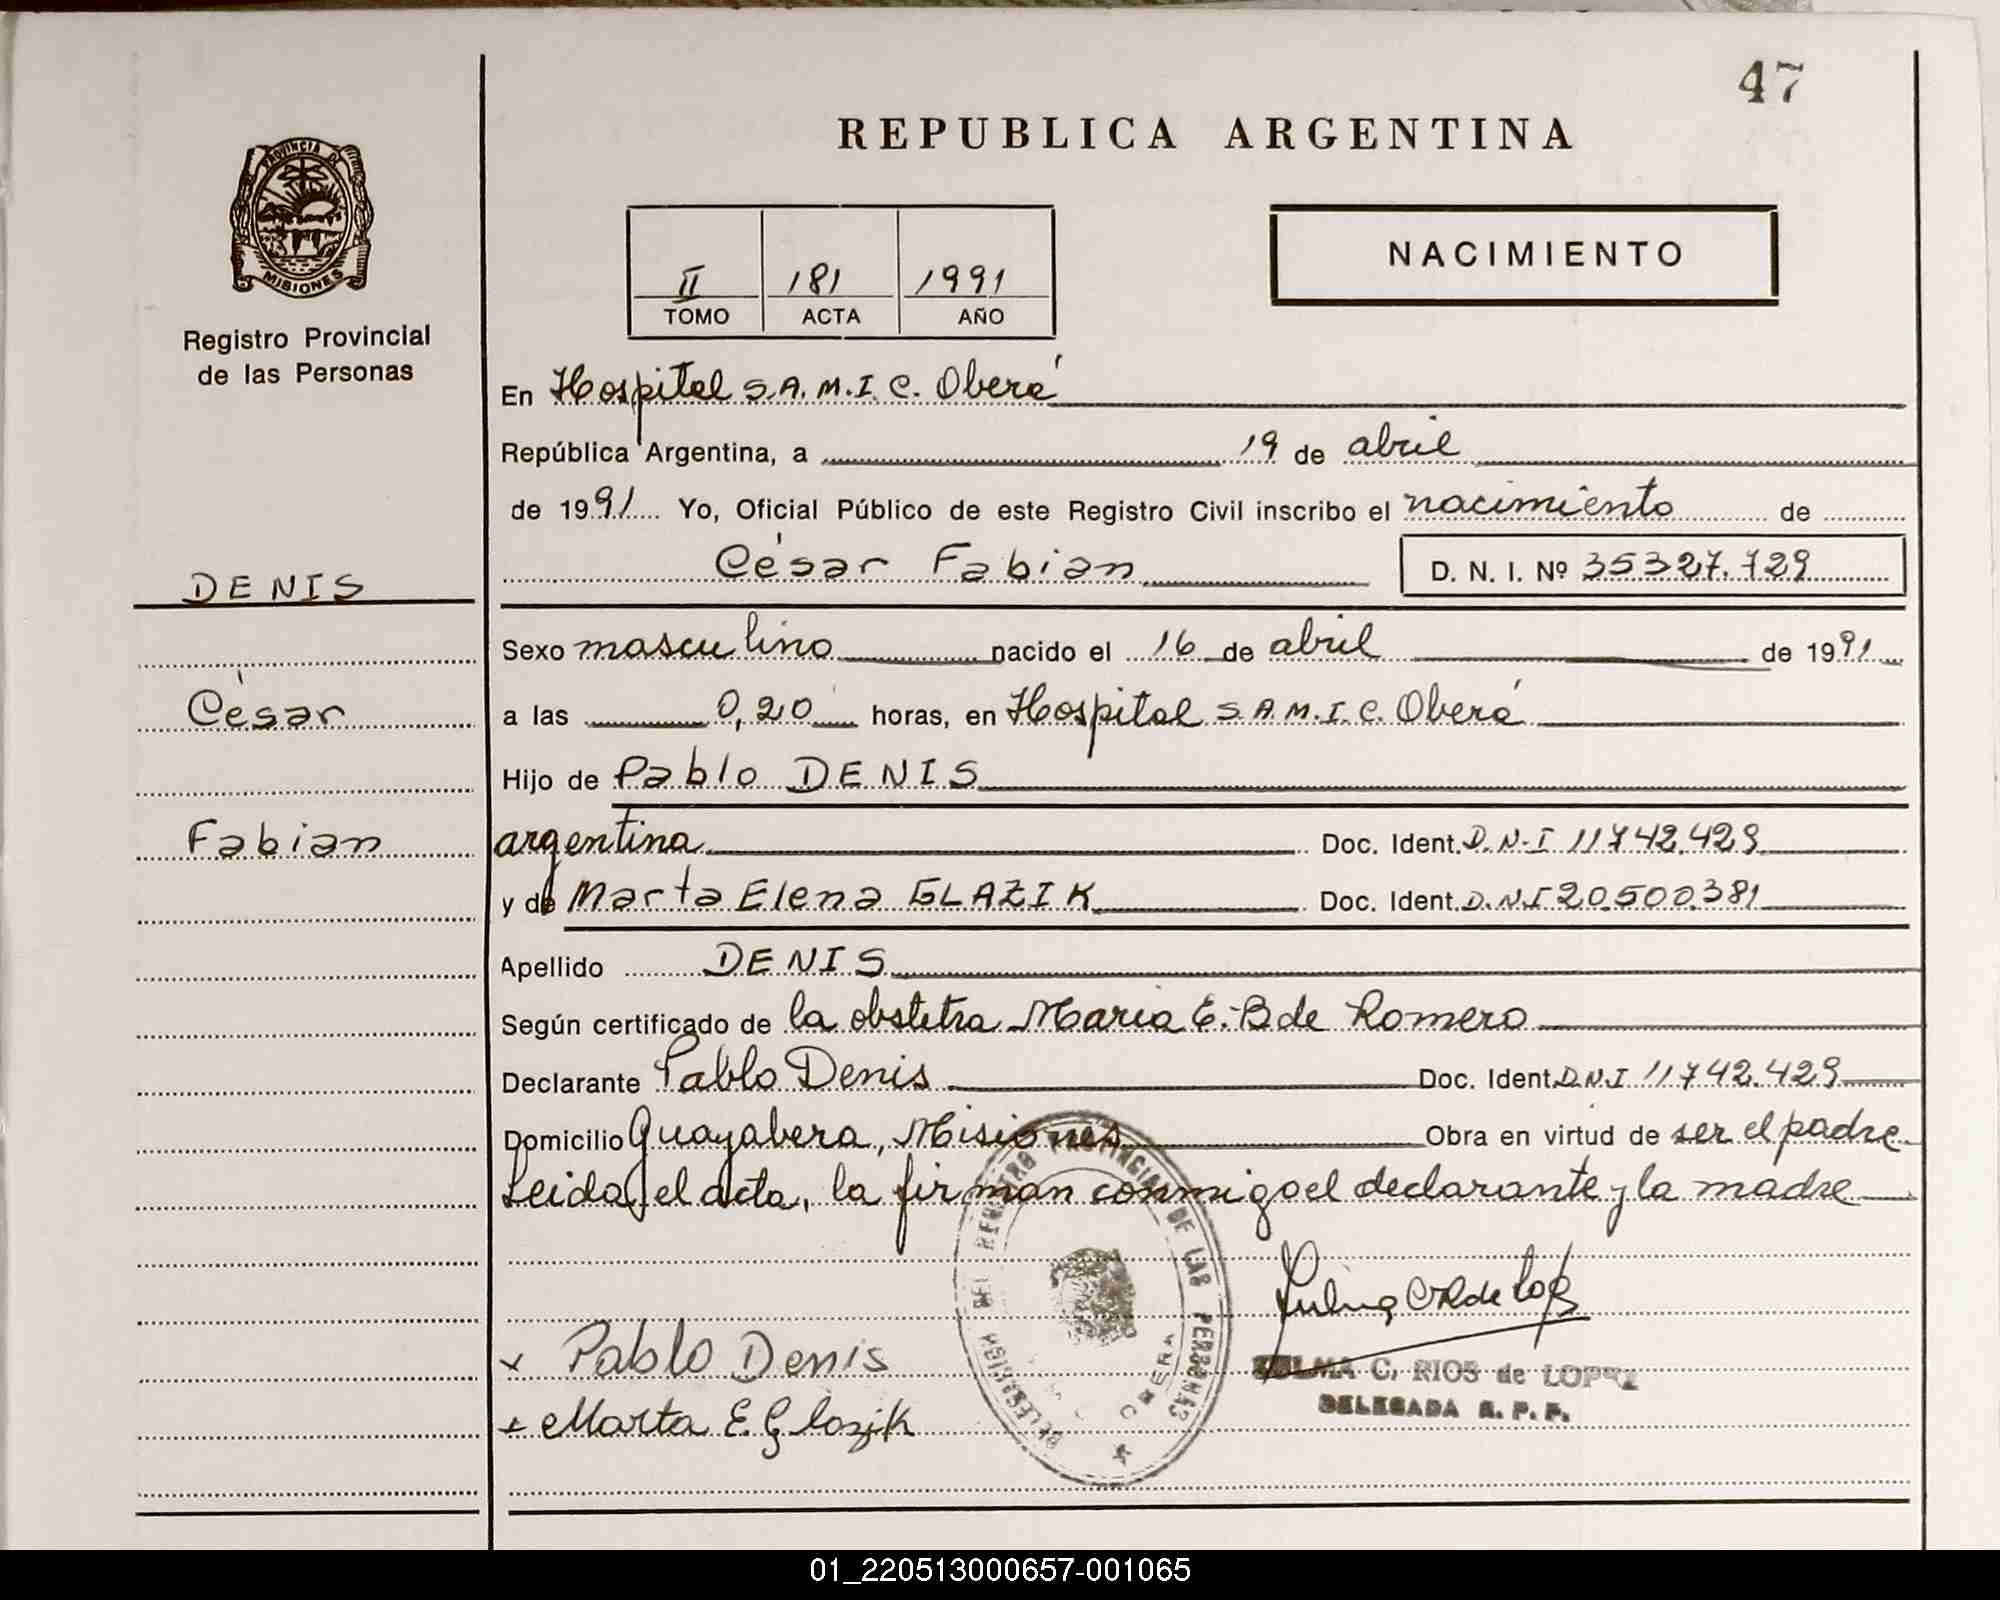 47
REPUBLICA ARGENTINA
PROVINCIA DE
MISIONES
Registro Provincial
de las Personas
II 181 1991
TOMO ACTA AÑO
NACIMIENTO
En Hospital S.A.M.I.C. Oberá
República Argentina, a 19 de abril
de 1991 Yo, Oficial Público de este Registro Civil inscribo el nacimiento de
César Fabian D. N. I. Nº 35327.729
DENIS
Sexo masculino nacido el 16 de abril de 1991
César
a las 0,20 horas, en Hospital S.A.M.I.C. Oberá
Hijo de Pablo DENIS
Fabian
argentina Doc. Ident. D.N.I 11742.429
y de Marta Elena GLAZIK Doc. Ident. D.N.I 20.500.381
Apellido DENIS
Según certificado de la obstetra Maria E. B de Romero
Declarante Pablo Denis Doc. Ident. D.N.I 11742.429
Domicilio Guayabera, Misiones Obra en virtud de ser el padre
Leida el acta, la firman conmigo el declarante y la madre
DELEGACION DEL REGISTRO PROVINCIAL DE LAS PERSONAS
x Pablo Denis
ZULMA C. RIOS de LOPEZ
DELEGADA R. P. P.
x Marta E. Glazik
01_220513000657-001065